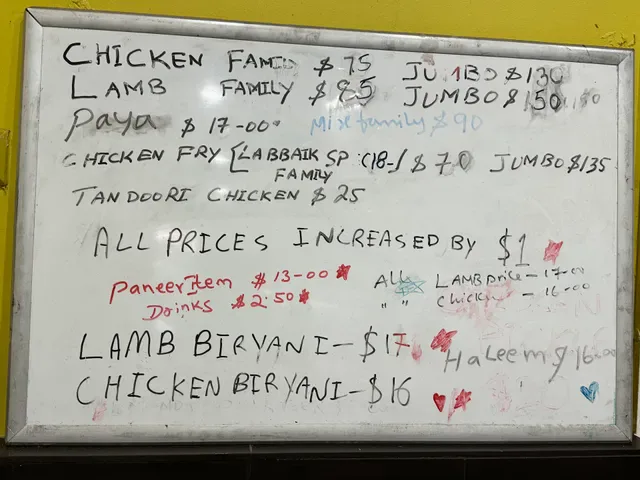 CHICKEN FAMI $75 JUMBO $130
LAMB FAMILY $85 JUMBO $150
Paya $17-00
Mix family $90
CHICKEN FRY [LABBAIK SP (18-) $70 JUMBO $135
FAMILY
TANDOORI CHICKEN $25
ALL PRICES INCREASED BY $1
Paneer Item $13-00
ALL LAMB price - 17-00
Drinks $2.50
" " Chicken - 16-00
LAMB BIRYANI - $17
Haleem $16-00
CHICKEN BIRYANI - $16